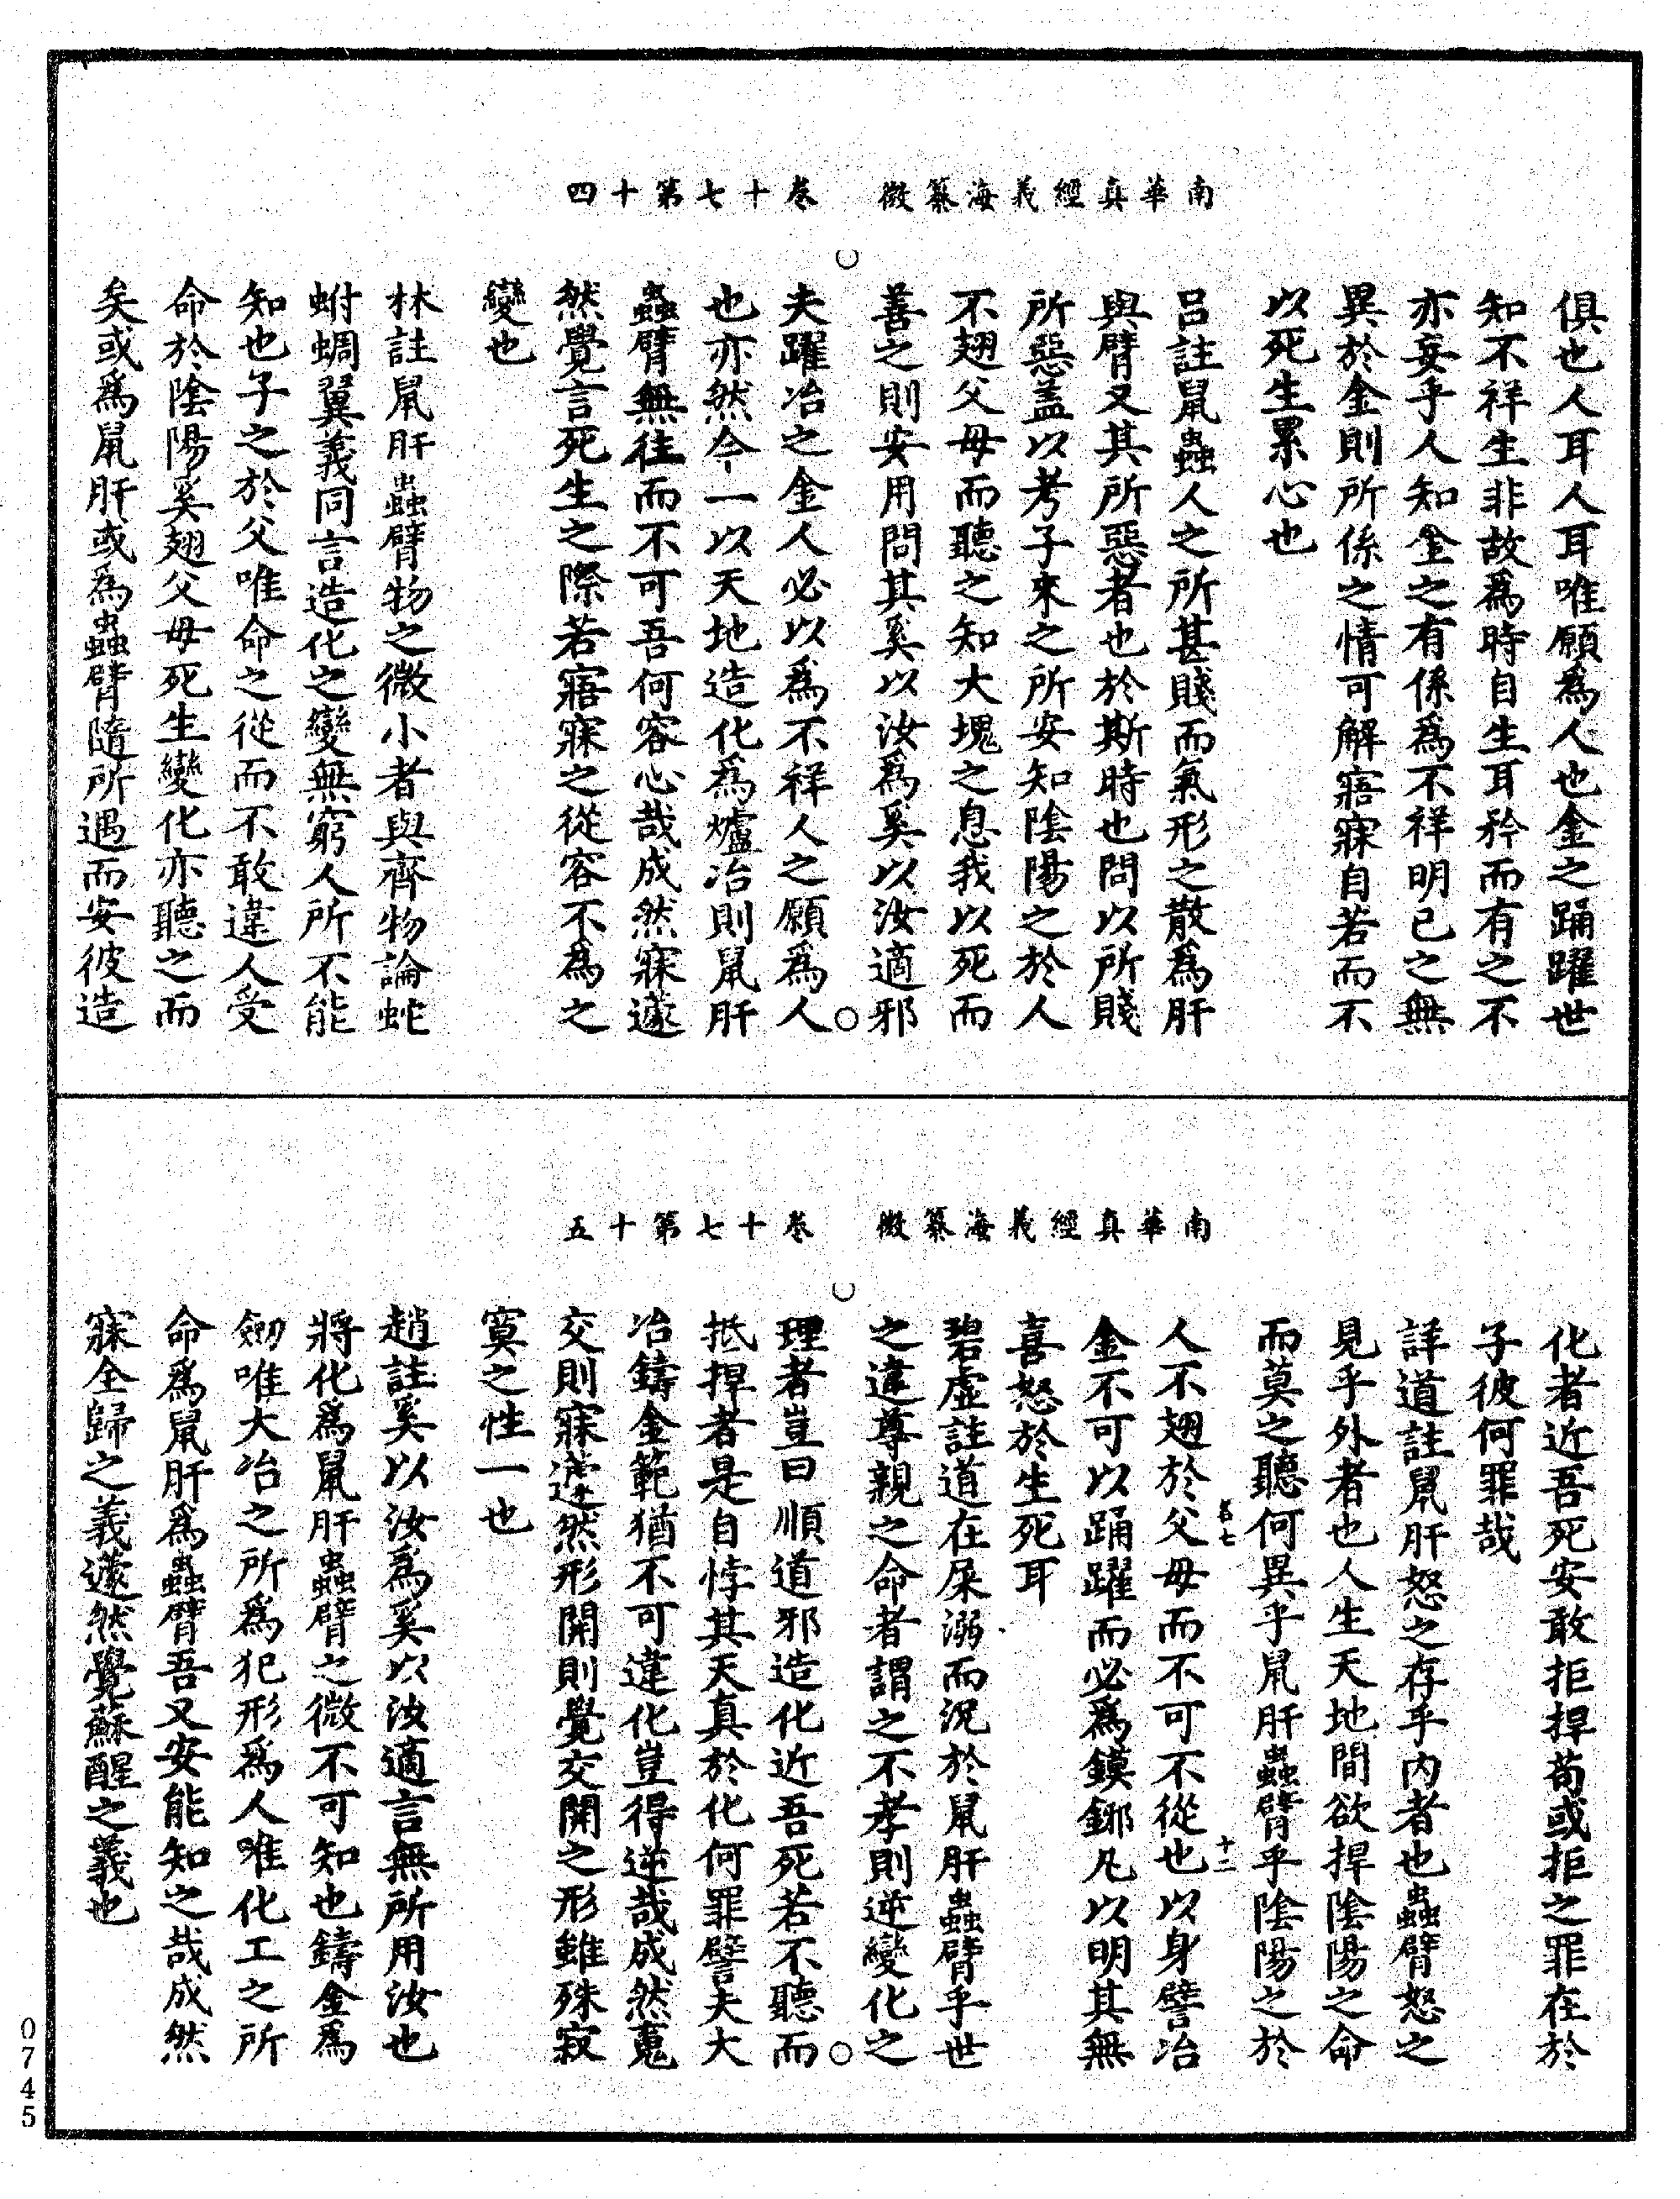 南華真經義海纂微　卷十七第十四
俱也人耳人耳唯願爲人也金之踊躍世
知不祥生非故爲時自生耳矜而有之不
亦妄乎人知金之有係爲不祥明己之無
異於金則所係之情可解寤寐自若而不
以死生累心也
呂註鼠蟲人之所甚賤而氣形之散爲肝
與臂又其所惡者也於斯時也問以所賤
所惡盖以考子來之所安知陰陽之於人
不翅父母而聽之知大塊之息我以死而
善之則安用問其奚以汝爲奚以汝適邪
夫躍冶之金人必以爲不祥人之願爲人
也亦然今一以天地造化爲爐冶則鼠肝
蟲臂無往而不可吾何容心哉成然寐蘧
然覺言死生之際若寤寐之從容不為之
變也
林註鼠肝蟲臂物之微小者與齊物論蛇
蚹蜩翼義同言造化之變無窮人所不能
知也子之於父唯命之從而不敢違人受
命於陰陽奚翅父母死生變化亦聽之而
矣或爲鼠肝或爲蟲臂隨所遇而安彼造
南華真經義海纂微　卷十七第十五
化者近吾死安敢拒捍苟或拒之罪在於
子彼何罪哉
詳道註鼠肝怒之存乎内者也蟲臂怒之
見乎外者也人生天地間欲捍陰陽之命
而莫之聽何異乎鼠肝蟲臂乎陰陽之於
人不翅於父母而不可不從也以身譬冶
金不可以踊躍而必爲鏌鋣凡以明其無
喜怒於生死耳
碧虛註道在屎溺而況於鼠肝蟲臂乎世
之違尊親之命者謂之不孝則逆變化之
理者豈曰順道邪造化近吾死若不聽而
抵捍者是自悖其天真於化何罪譬夫大
冶鑄金範猶不可違化豈得逆哉成然寬
交則寐蘧然形開則覺交開之形雖殊寂
寞之性一也
趙註奚以汝爲奚以汝適言無所用汝也
將化爲鼠肝蟲臂之微不可知也鑄金爲
劒唯大冶之所爲犯形爲人唯化工之所
命爲鼠肝爲蟲臂吾又安能知之哉成然
寐全歸之義蘧然覺蘇醒之義也
0745